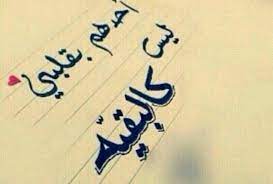 أحدهم بقلبي
ليس
كالبقيه